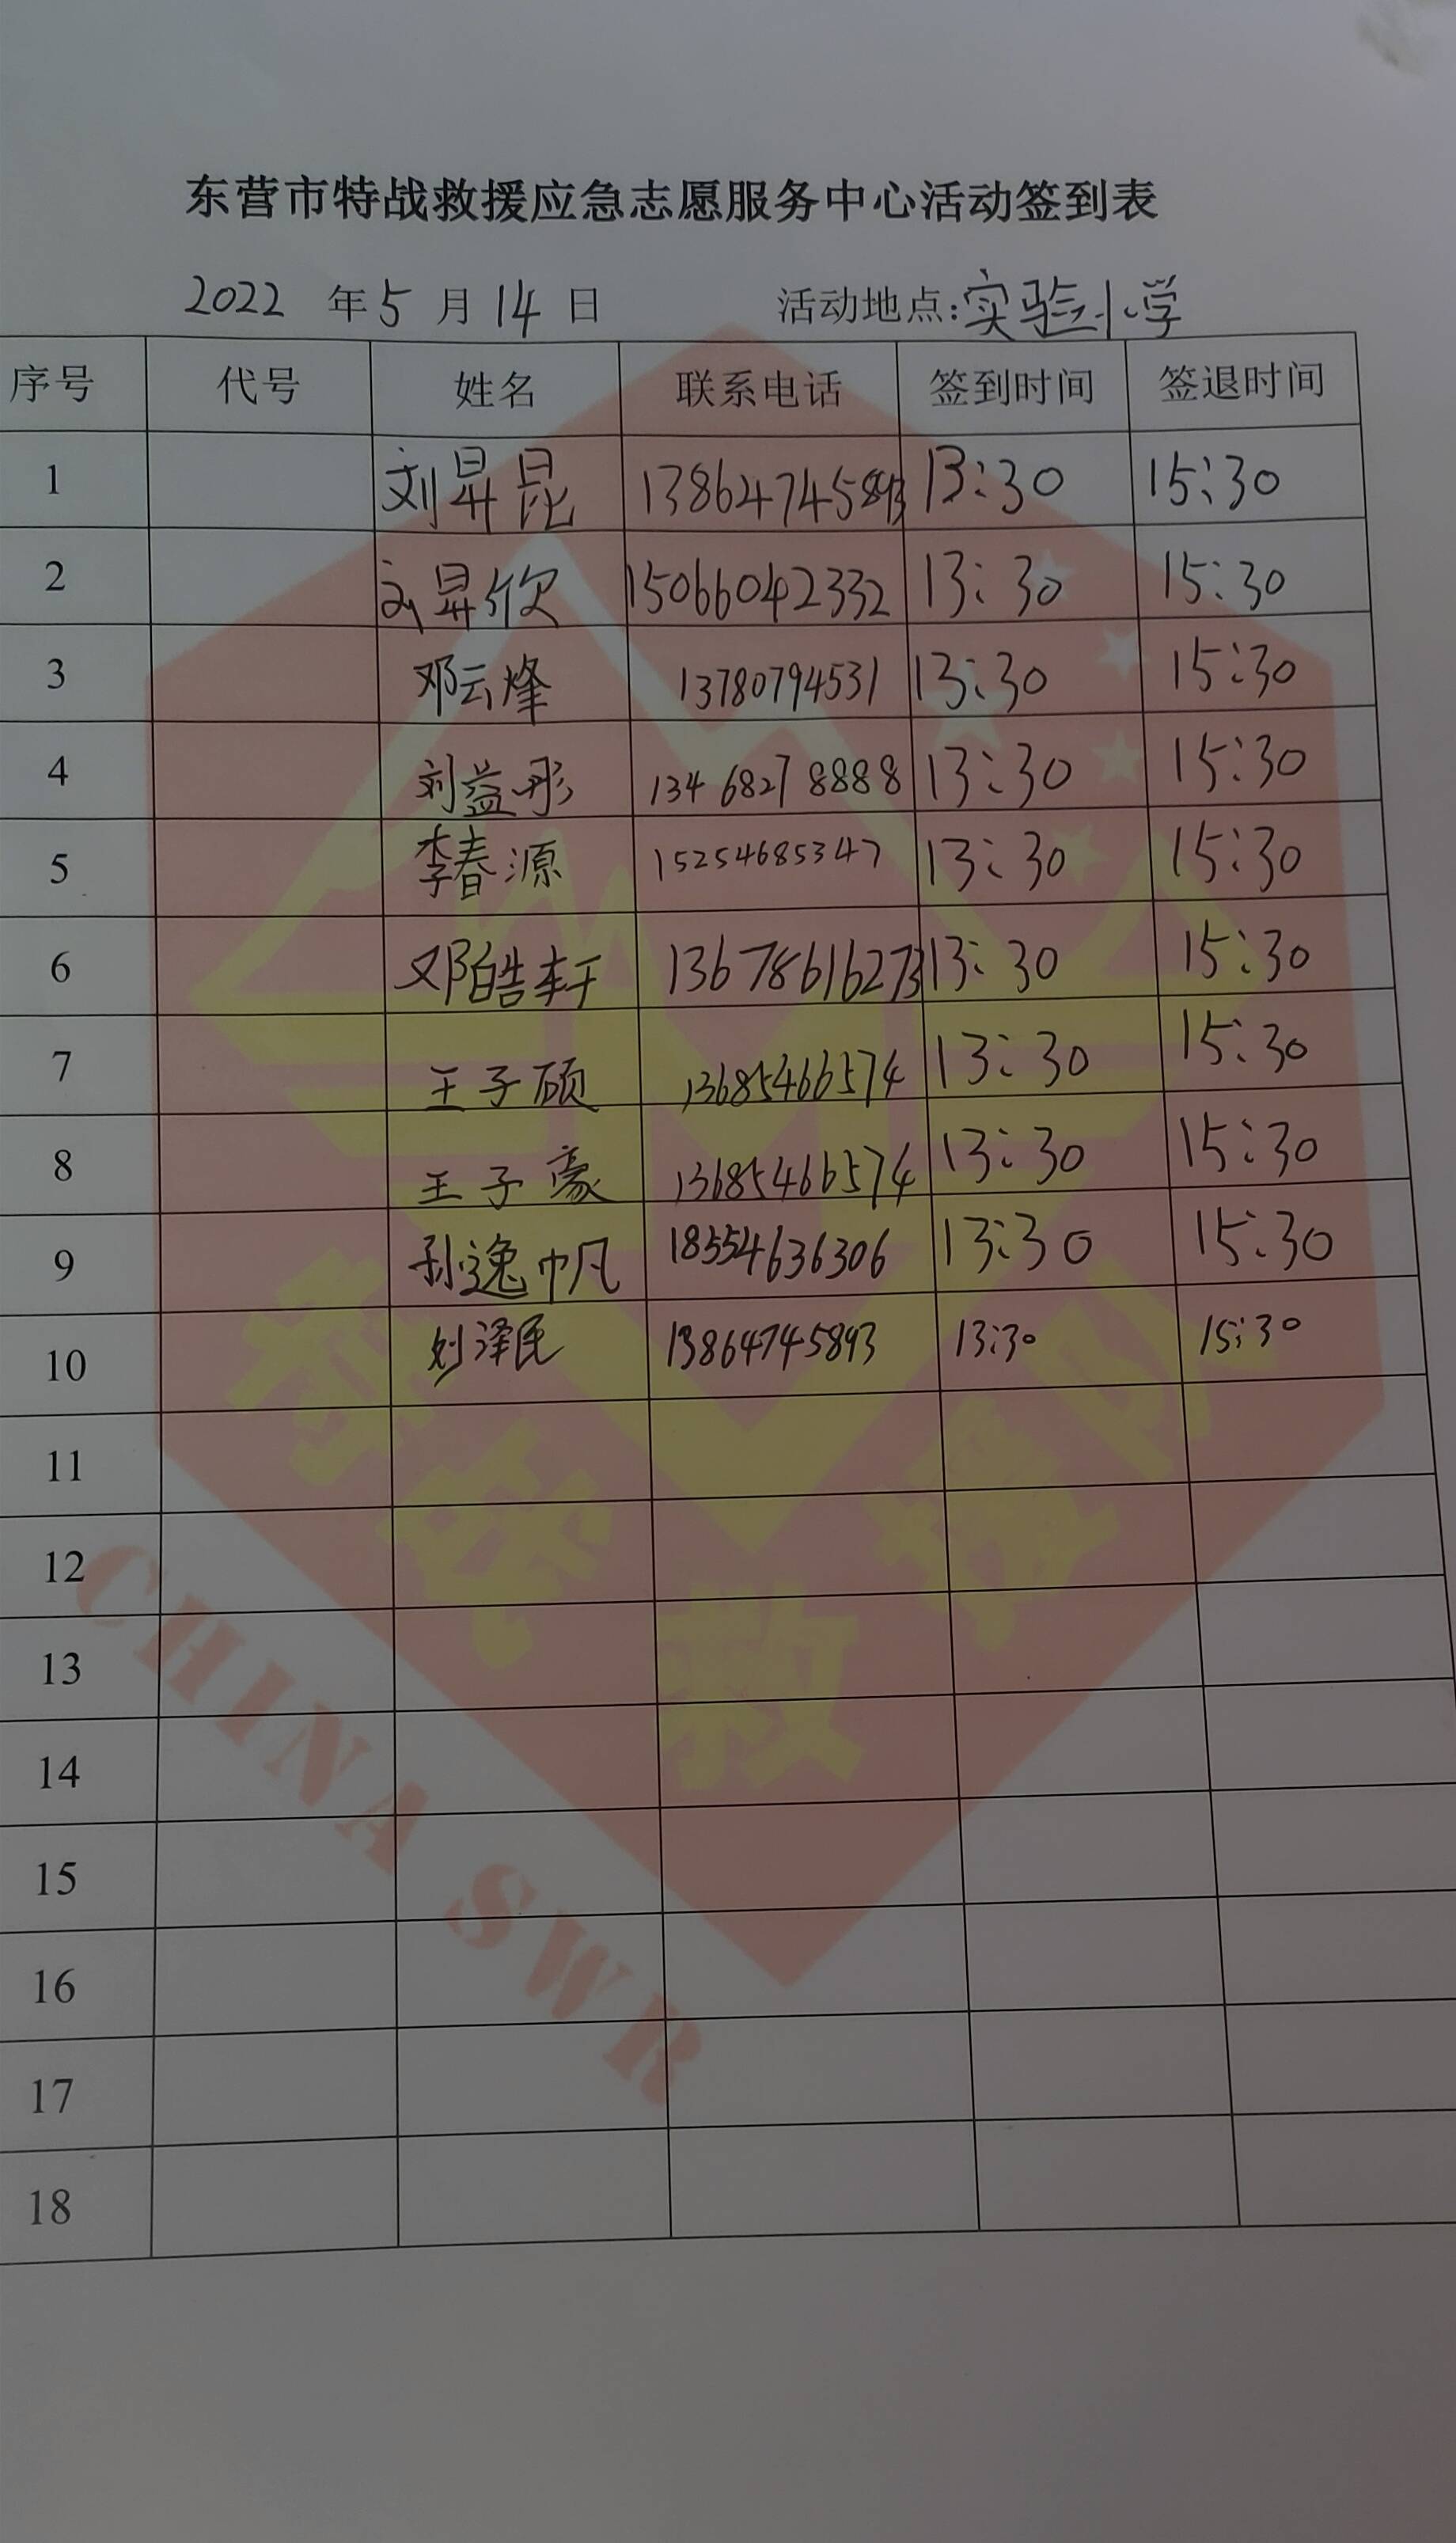 东营市特战救援应急志愿服务中心活动签到表
2022 年 5 月 14 日 活动地点:实验小学
序号 代号 姓名 联系电话 签到时间 签退时间
1 刘昇昆 13864745893 13:30 15:30
2 刘昇欣 15066042332 13:30 15:30
3 邓云烽 13780794531 13:30 15:30
4 刘益彤 13468278888 13:30 15:30
5 李春源 15254685347 13:30 15:30
6 邓皓轩 13678616273 13:30 15:30
7 王子硕 13685466574 13:30 15:30
8 王子豪 13685466574 13:30 15:30
9 孙逸帆 18554636306 13:30 15:30
10 刘泽民 13864745893 13:30 15:30
11
12
13
14
15
16
17
18
CHINA SWR